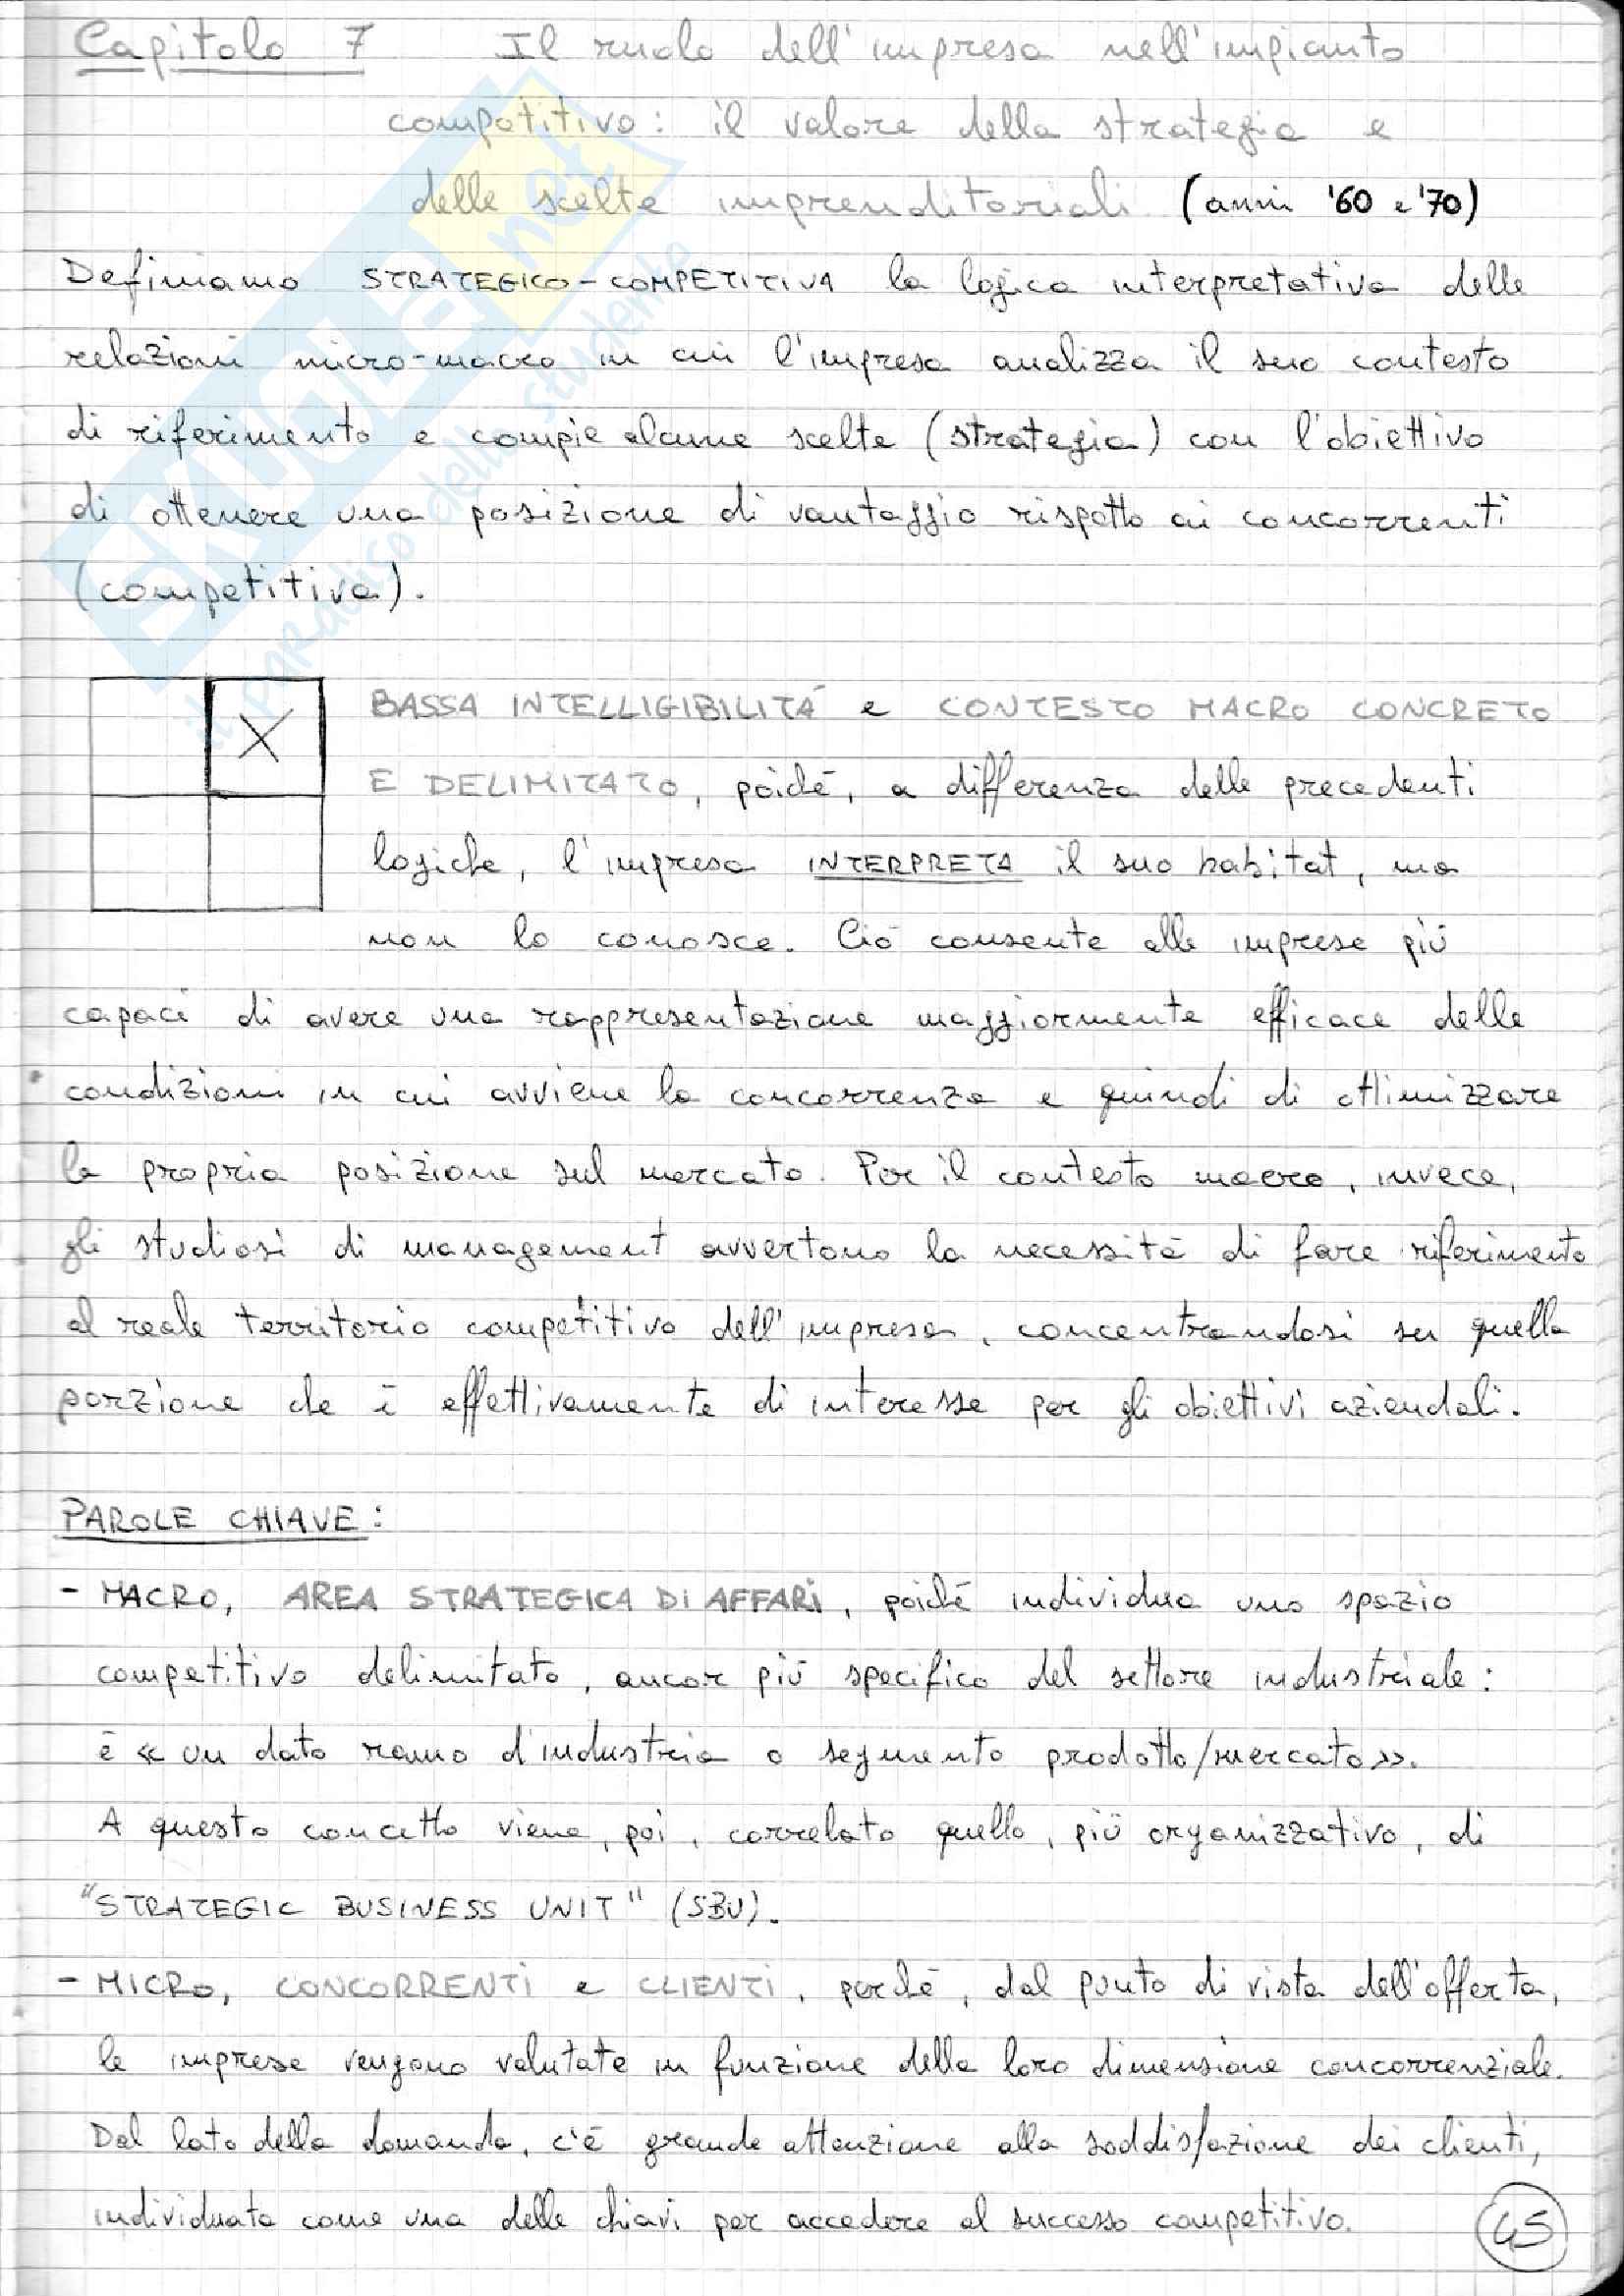 Capitolo 7 Il ruolo dell'impresa nell'impianto
competitivo: il valore della strategia e
delle scelte imprenditoriali (anni '60 e '70)
Definiamo STRATEGICO-COMPETITIVA la logica interpretativa delle
relazioni micro-macro in cui l'impresa analizza il suo contesto
di riferimento e compie alcune scelte (strategia) con l'obiettivo
di ottenere una posizione di vantaggio rispetto ai concorrenti
(competitiva).
X
BASSA INTELLIGIBILITÁ e CONTESTO MACRO CONCRETO
E DELIMITATO, poiché, a differenza delle precedenti
logiche, l'impresa INTERPRETA il suo habitat, ma
non lo conosce. Ciò consente alle imprese più
capaci di avere una rappresentazione maggiormente efficace delle
condizioni in cui avviene la concorrenza e quindi di ottimizzare
la propria posizione sul mercato. Per il contesto macro, invece,
gli studiosi di management avvertono la necessità di fare riferimento
al reale territorio competitivo dell'impresa, concentrandosi su quella
porzione che è effettivamente di interesse per gli obiettivi aziendali.
PAROLE CHIAVE:
- MACRO, AREA STRATEGICA DI AFFARI, poiché individua uno spazio
competitivo delimitato, ancor più specifico del settore industriale:
è «un dato ramo d'industria o segmento prodotto/mercato».
A questo concetto viene, poi, correlato quello, più organizzativo, di
"STRATEGIC BUSINESS UNIT" (SBU).
- MICRO, CONCORRENTI e CLIENTI, perché, dal punto di vista dell'offerta,
le imprese vengono valutate in funzione della loro dimensione concorrenziale.
Dal lato della domanda, c'è grande attenzione alla soddisfazione dei clienti,
individuata come una delle chiavi per accedere al successo competitivo.
45
SKUOLA.net
il paradiso dello studente